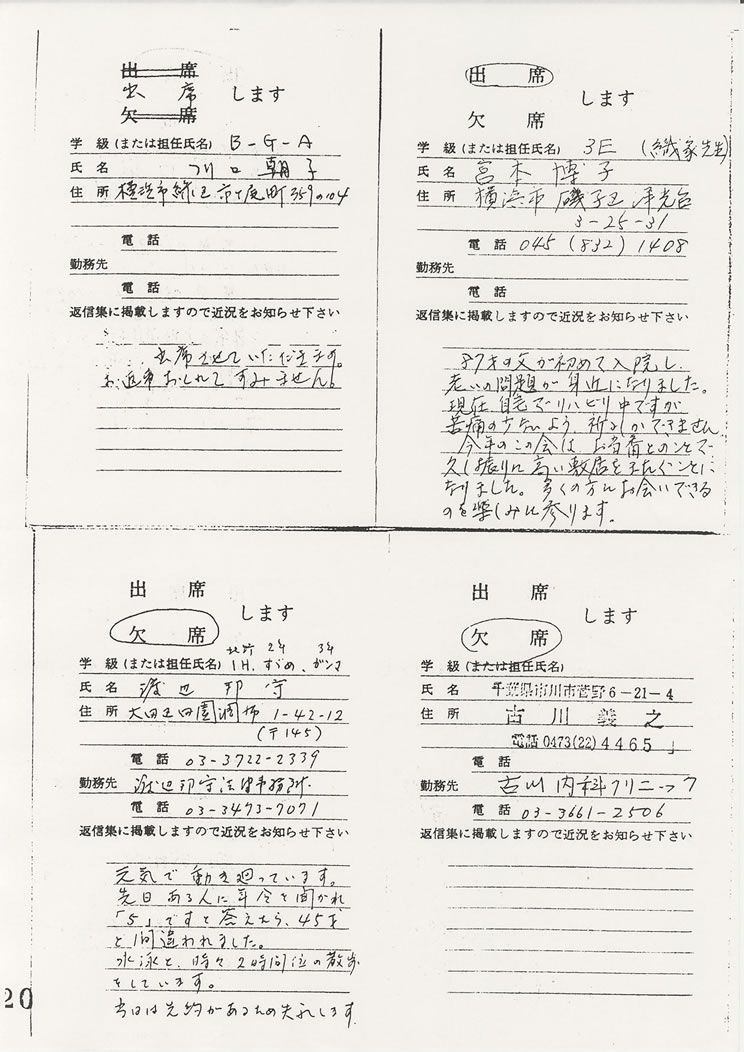 出席
出席 します
欠席
学級(または担任氏名) B-G-A
氏名 川口朝子
住所 横浜市緑区市ケ尾町359の104
電話
勤務先
電話
返信集に掲載しますので近況をお知らせ下さい
出席させていただきます。
お返事おくれてすみません。
出席
します
欠席
学級(または担任氏名) 3E (織家先生)
氏名 宮本博子
住所 横浜市磯子区洋光台
3-25-31
電話 045(832)1408
勤務先
電話
返信集に掲載しますので近況をお知らせ下さい
87才の父が初めて入院し、
老いの問題が身近になりました。
現在自宅でリハビリ中ですが
苦痛の少ないよう、祈るしかできません
今年のこの会は、お当番とのことで
久し振りに高い敷居をまたぐことに
なりました。多くの方にお会いできる
のを楽しみに参ります。
出席
します
欠席
2年 3年
学級(または担任氏名) 1H、すずめ、ガンマ
氏名 渡辺邦守
住所 大田区田園調布 1-42-12
(〒145)
電話 03-3722-2339
勤務先 渡辺邦守法律事務所
電話 03-3473-7071
返信集に掲載しますので近況をお知らせ下さい
元気で動き廻っています。
先日ある人に年令を聞かれ
「5」ですと答えたら、45才
と間違われました。
水泳と、時々2時間位の散歩
をしています。
当日は先約があるため失礼します
出席
します
欠席
学級(または担任氏名)
氏名 千葉県市川市菅野6-21-4
住所 古川義之
電話0473(22)4465
電話
勤務先 古川内科クリニック
電話 03-3661-2506
返信集に掲載しますので近況をお知らせ下さい
20